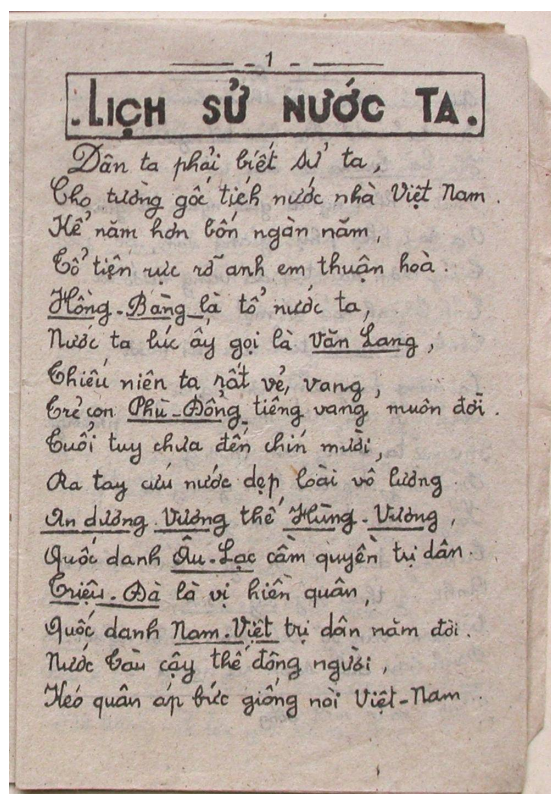 - 1 -
LỊCH SỬ NƯỚC TA.
Dân ta phải biết sử ta,
Cho tường gốc tích nước nhà Việt Nam.
Kể năm hơn bốn ngàn năm,
Tổ tiên rực rỡ anh em thuận hoà.
Hồng-Bàng là tổ nước ta,
Nước ta lúc ấy gọi là Văn Lang,
Thiếu niên ta rất vẻ vang,
Trẻ con Phù-Đổng tiếng vang muôn đời.
Tuổi tuy chưa đến chín mười,
Ra tay cứu nước dẹp loài vô lương.
An dương Vương thế Hùng-Vương,
Quốc danh Âu-Lạc cầm quyền trị dân.
Triệu-Đà là vị hiền quân,
Quốc danh Nam-Việt trị dân năm đời.
Nước Tàu cậy thế đông người,
Kéo quân áp bức giống nòi Việt-Nam.